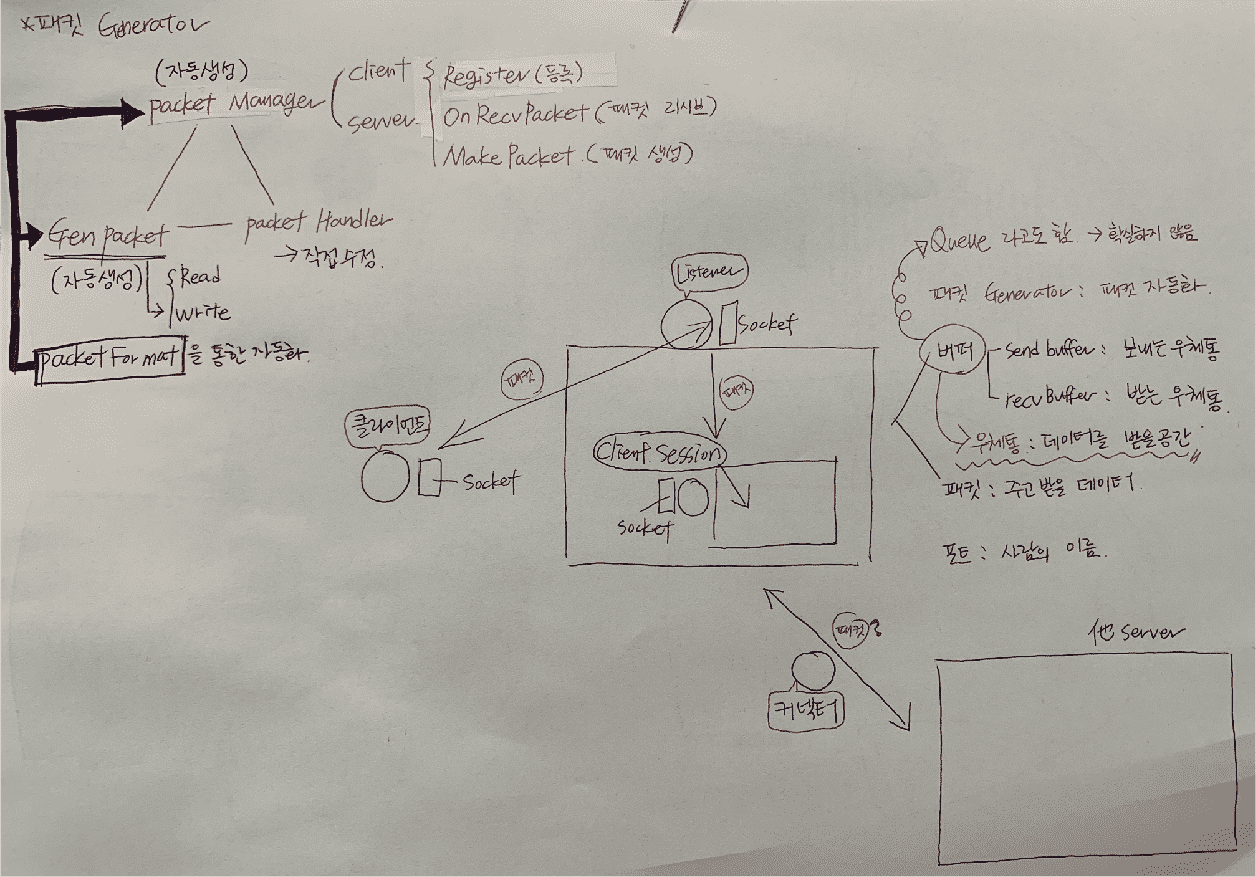 *패킷 Generator
(자동생성)
packet Manager
client
server
Register (등록)
OnRecvPacket (패킷 리시브)
Make Packet (패킷 생성)
Gen packet
(자동생성)
Read
write
packet Handler
→ 직접수정.
packet Format 을 통한 자동화.
Listener
Socket
패킷
패킷
클라이언트
Socket
Client Session
Socket
Queue 라고도 함. → 확실하지 않음
패킷 Generator : 패킷 자동화.
버퍼
Send buffer : 보내는 우체통
recv Buffer : 받는 우체통
우체통 : 데이터를 받을공간
패킷 : 주고받을 데이터.
포트 : 사람의 이름.
패킷?
커넥터
他 server